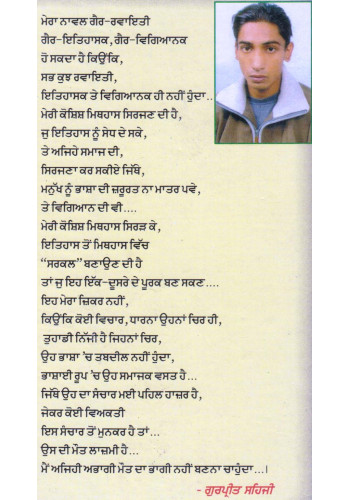 ਮੇਰਾ ਨਾਵਲ ਗੈਰ-ਰਵਾਇਤੀ
ਗੈਰ-ਇਤਿਹਾਸਕ,ਗੈਰ-ਵਿਗਿਆਨਕ
ਹੋ ਸਕਦਾ ਹੈ ਕਿਉਂਕਿ,
ਸਭ ਕੁਝ ਰਵਾਇਤੀ,
ਇਤਿਹਾਸਕ ਤੇ ਵਿਗਿਆਨਕ ਹੀ ਨਹੀਂ ਹੁੰਦਾ...
ਮੇਰੀ ਕੋਸ਼ਿਸ਼ ਮਿਥਹਾਸ ਸਿਰਜਣ ਦੀ ਹੈ,
ਜੁ ਇਤਿਹਾਸ ਨੂੰ ਸੇਧ ਦੇ ਸਕੇ,
ਤੇ ਅਜਿਹੇ ਸਮਾਜ ਦੀ,
ਸਿਰਜਣਾ ਕਰ ਸਕੀਏ ਜਿੱਥੇ,
ਮਨੁੱਖ ਨੂੰ ਭਾਸ਼ਾ ਦੀ ਜ਼ਰੂਰਤ ਨਾ ਮਾਤਰ ਪਵੇ,
ਤੇ ਵਿਗਿਆਨ ਦੀ ਵੀ....
ਮੇਰੀ ਕੋਸ਼ਿਸ਼ ਮਿਥਹਾਸ ਸਿਰੜ ਕੇ,
ਇਤਿਹਾਸ ਤੋਂ ਮਿਥਹਾਸ ਵਿੱਚ
“ਸਰਕਲ” ਬਣਾਉਣ ਦੀ ਹੈ
ਤਾਂ ਜੁ ਇਹ ਇੱਕ-ਦੂਸਰੇ ਦੇ ਪੂਰਕ ਬਣ ਸਕਣ....
ਇਹ ਮੇਰਾ ਜ਼ਿਕਰ ਨਹੀਂ,
ਕਿਉਂਕਿ ਕੋਈ ਵਿਚਾਰ, ਧਾਰਨਾ ਉਹਨਾਂ ਚਿਰ ਹੀ,
ਤੁਹਾਡੀ ਨਿੱਜੀ ਹੈ ਜਿਹਨਾਂ ਚਿਰ,
ਉਹ ਭਾਸ਼ਾ ’ਚ ਤਬਦੀਲ ਨਹੀਂ ਹੁੰਦਾ,
ਭਾਸ਼ਾਈ ਰੂਪ ’ਚ ਉਹ ਸਮਾਜਕ ਵਸਤ ਹੈ...
ਜਿੱਥੇ ਉਹ ਦਾ ਸੰਚਾਰ ਮਈ ਪਹਿਲ ਹਾਜ਼ਰ ਹੈ,
ਜੇਕਰ ਕੋਈ ਵਿਅਕਤੀ
ਇਸ ਸੰਚਾਰ ਤੋਂ ਮੁਨਕਰ ਹੈ ਤਾਂ...
ਉਸ ਦੀ ਮੌਤ ਲਾਜ਼ਮੀ ਹੈ...
ਮੈਂ ਅਜਿਹੀ ਅਭਾਗੀ ਮੌਤ ਦਾ ਭਾਗੀ ਨਹੀਂ ਬਣਨਾ ਚਾਹੁੰਦਾ...।
- ਗੁਰਪ੍ਰੀਤ ਸਹਿਜੀ